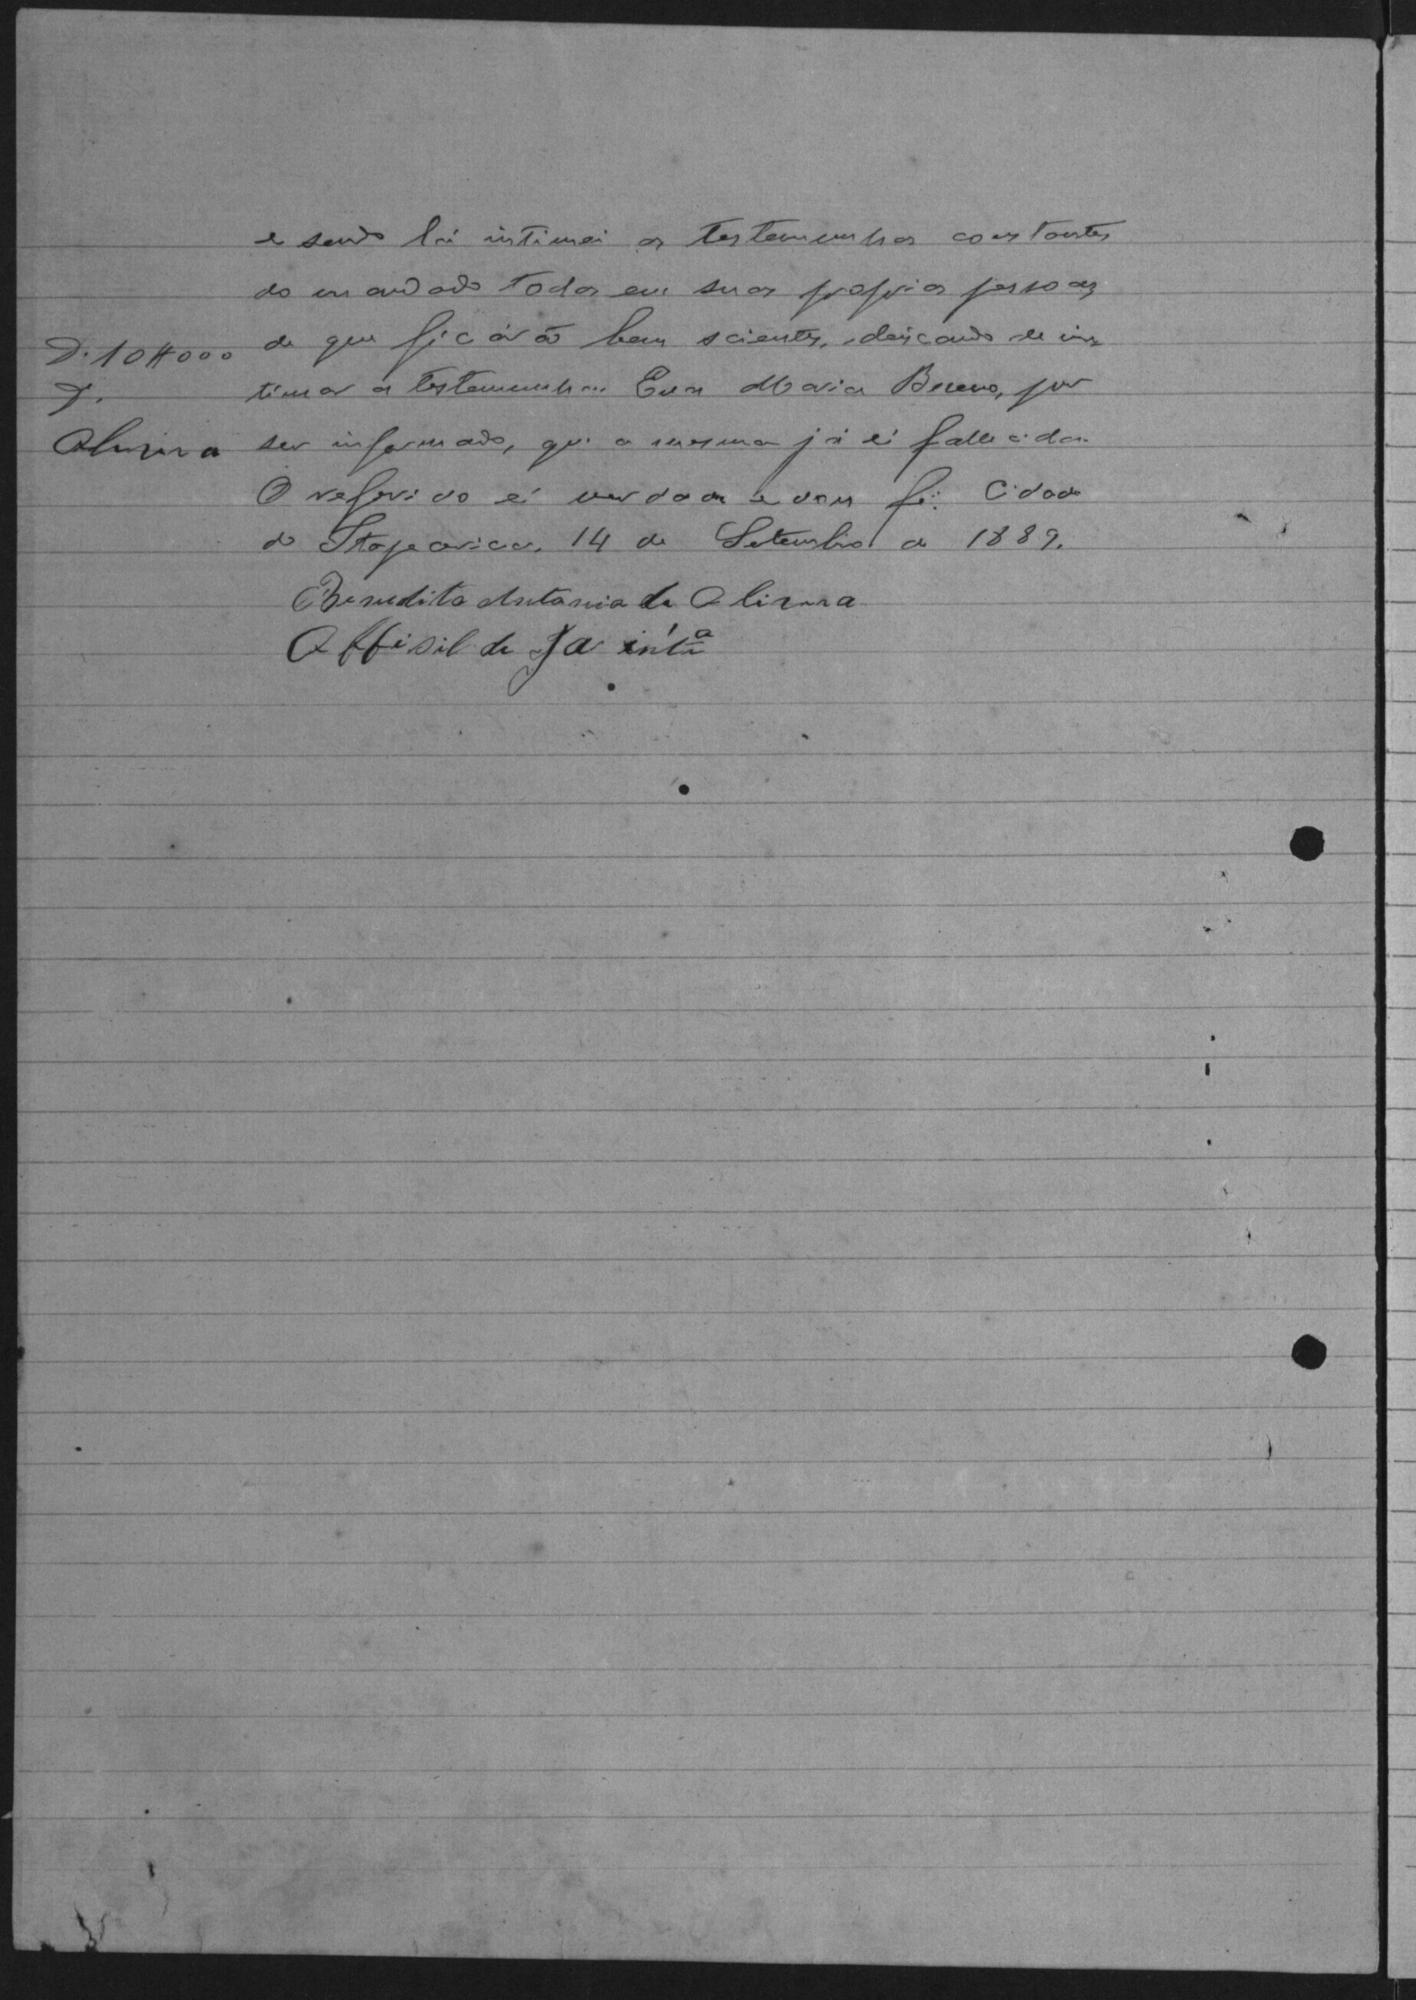 e sendo lá intimei as testemunhas constantes
do mandado todas em suas proprias pessoas
de que ficárão bem scientes, deicando de in-
timar a testemunha Eva Maria Bueno, por
ser informado, que a mesma já é fallecida.
O referido é verdade e dou fé. Cidade
de Itapecerica, 14 de Setembro de 1889.
Benedito Antonio de Olivera
Offisil de
D. 10#000
D.
Olivera